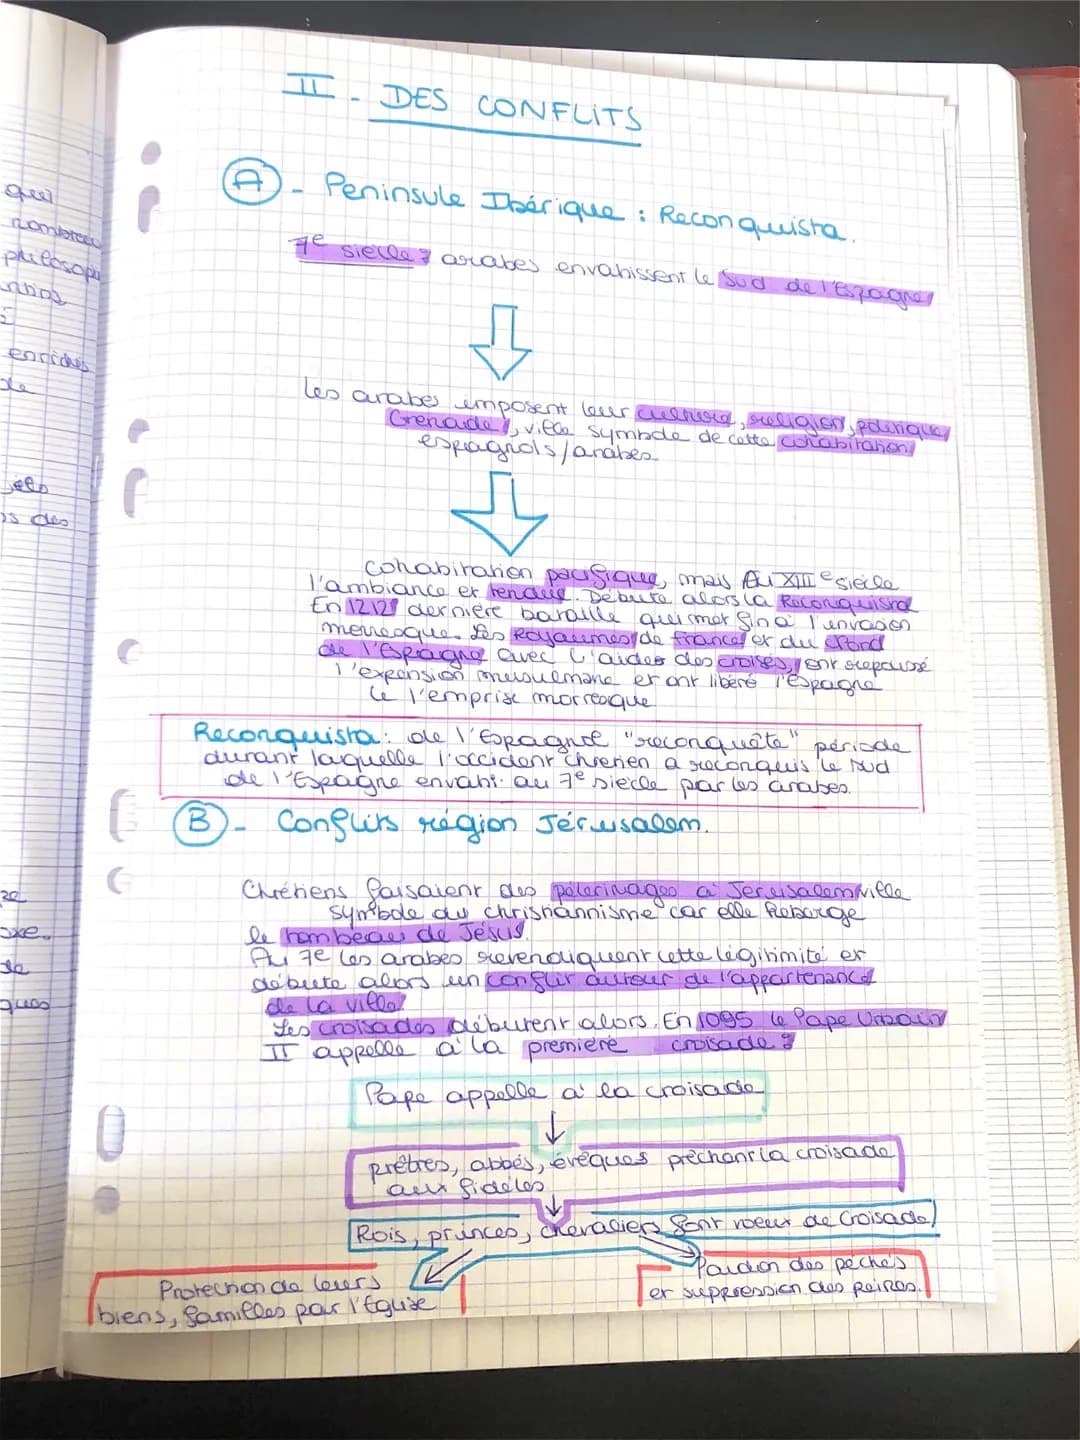 II - DES CONFLITS
A - Peninsule Ibérique : Reconquista.
7e siecle : arabes envahissent le Sud de l'Espagne
Les arabes imposent leur culture, religion, politique
Grenade, ville symbole de cette cohabitation
espagnols/arabes.
Cohabitation pacifique, mais Au XIIIe siecle
l'ambiance et tendue. Débute alors la Reconquista
En 1212 derniere bataille qui met fin à l'invasion
morresque. Les Royaumes de france et du Nord
de l'Espagne avec l'aides des croisés, ont repoussé
l'expension musulmane et ont libéré l'Espagne
de l'emprise morresque
Reconquista: de l'Espagnol "reconquête" période
durant laquelle l'occident chretien a reconquis le sud
de l'Espagne envahi au 7e siecle par les arabes.
B - Conflits région Jérusalem.
Chrétiens faisaient des pélerinages à Jerusalem ville
symbole du christiannisme car elle heberge
le tombeau de Jésus.
Au 7e les arabes revendiquent cette légitimité et
débute alors un conflit autour de l'appartenance
de la ville.
Les croisades débutent alors. En 1095 le Pape Urbain
II appelle à la premiere croisade :
Pape appelle à la croisade
prêtres, abbés, évêques prêchent la croisade
aux fidèles
Rois, princes, chevaliers font voeux de Croisade
Protection de leurs
biens, familles par l'église
Pardon des péchés
et suppression des peines.
quel
philosoph
enrichis
de
s des